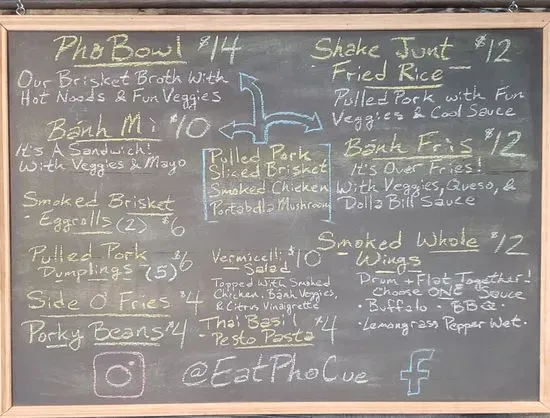 Pho Bowl $14
Our Brisket Broth With
Hot Noods & Fun Veggies
Shake Junt $12
Fried Rice
Pulled Pork with Fun
Veggies & Cool Sauce
Bánh Mì $10
It's A Sandwich!
With Veggies & Mayo
Pulled Pork
Sliced Brisket
Smoked Chicken
Portabella Mushroom
Bánh Fris $12
It's Over Fries!
With Veggies, Queso, &
Dolla Bill Sauce
Smoked Brisket
Eggrolls (2) $6
Pulled Pork $6
Dumplings (5)
Side O' Fries $4
Porky Beans $4
Vermicelli $10
Salad
Topped With Smoked
Chicken, Bánh Veggies,
& Citrus Vinaigrette
Thai Basil $4
Pesto Pasta
Smoked Whole $12
Wings
Drum + Flat Together!
Choose ONE Sauce
• Buffalo • BBQ •
• Lemongrass Pepper Wet •
@EatPhoCue
f